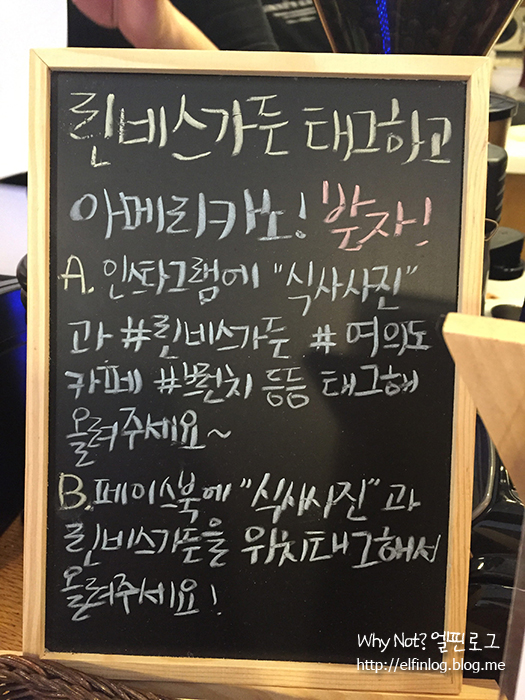 린비스가든 태그하고
아메리카노! 받자!
A. 인스타그램에 "식사사진"
과 #린비스가든 # 여의도
카페 #브런치 등등 태그해
올려주세요~
B. 페이스북에 "식사사진"과
린비스가든을 위치태그해서
올려주세요!
Why Not? 얼핀로그
http://elfinlog.blog.me